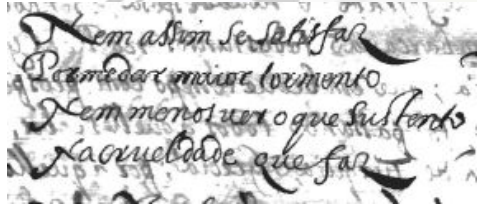 Nem assim se satisfaz
Por me dar maior tormento
Nem menos uer o que sustento
Na crueldade que faz